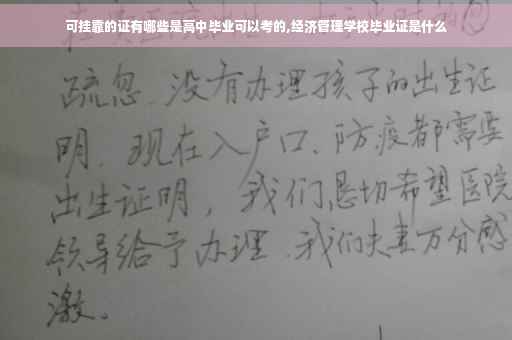 可挂靠的证有哪些是高中毕业可以考的,经济管理学校毕业证是什么
疏忽.没有办理孩子的出生证
明.现在入户口、防疫都需要
出生证明,我们恳切希望医院
领导给予办理.我们夫妻万分感
激。